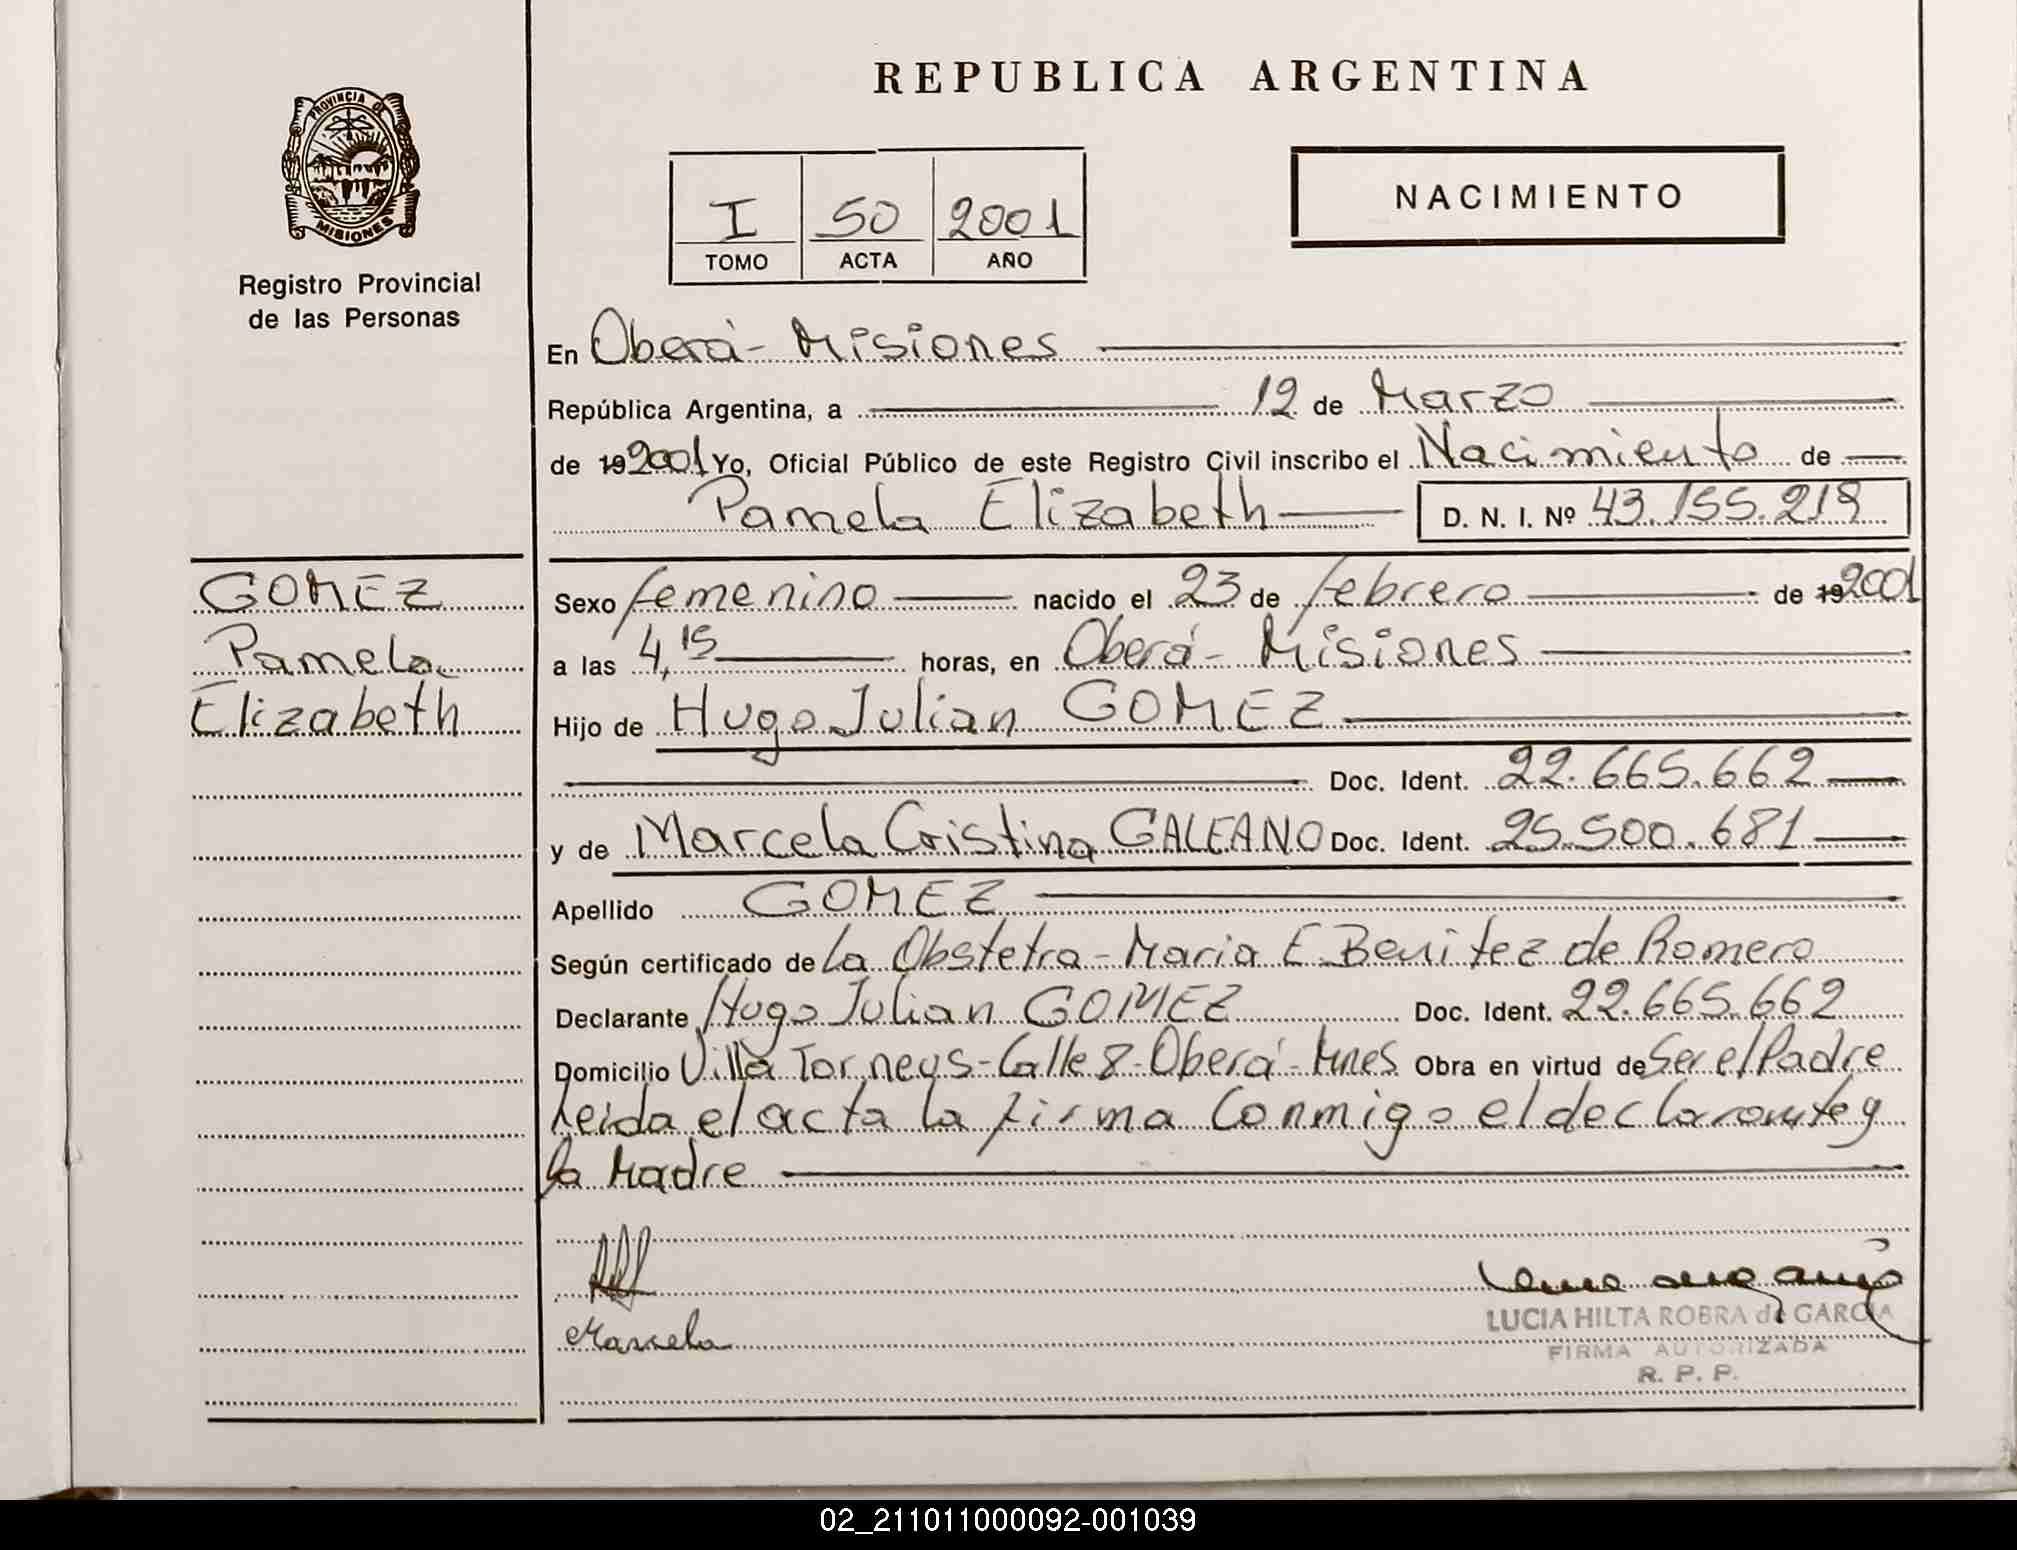 REPUBLICA ARGENTINA
PROVINCIA DE
MISIONES
Registro Provincial
de las Personas
I 50 2001
TOMO ACTA AÑO
NACIMIENTO
En Oberá - Misiones
República Argentina, a 12 de Marzo
de 19 2001 Yo, Oficial Público de este Registro Civil inscribo el Nacimiento de
Pamela Elizabeth D. N. I. Nº 43.155.219
GOMEZ
Pamela
Elizabeth
Sexo femenino nacido el 23 de febrero de 19 2001
a las 4,15 horas, en Oberá - Misiones
Hijo de Hugo Julian GOMEZ
Doc. Ident. 22.665.662
y de Marcela Cristina GALEANO Doc. Ident. 25.500.681
Apellido GOMEZ
Según certificado de La Obstetra - Maria E. Benitez de Romero
Declarante Hugo Julian GOMEZ Doc. Ident. 22.665.662
Domicilio Villa Torneus - Calle 8 - Oberá - Mnes Obra en virtud de Ser el Padre
Leida el acta la firma Conmigo el declarante y
la Madre
Marcela
LUCIA HILTA ROBRA de GARCIA
FIRMA AUTORIZADA
R. P. P.
02_211011000092-001039